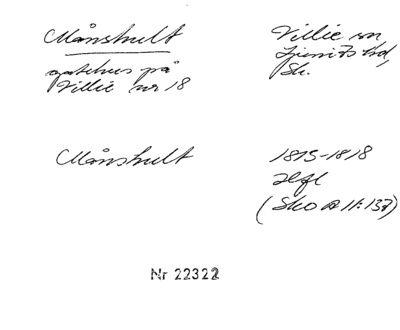 Månshult
Villie sn,
gatehus på
Ljunits hd,
Villie nr 18
Sk.
Månshult
1815-1818
Hfl
(SkO A II:137)
Nr 22322